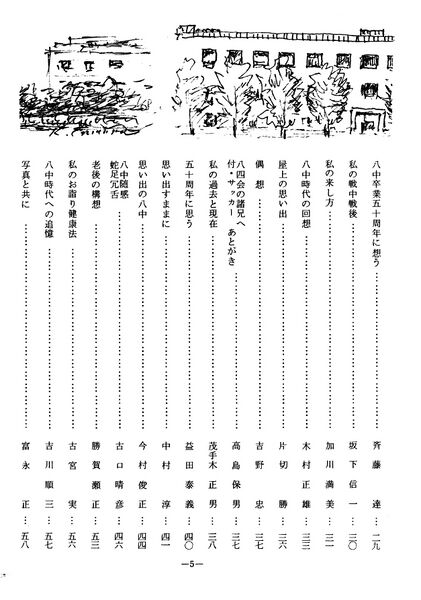 八中卒業五十周年に想う……斉藤　達…二九
私の戦中戦後……坂下信一…三〇
私の来し方……加川満美…三一
八中時代の回想……木村正雄…三三
屋上の思い出……片切　勝…三六
偶　想……吉野　忠…三七
八四会の諸兄へ
付・サッカー　あとがき……高島保男…三七
私の過去と現在……茂手木正男…三八
五十周年に思う……益田泰義…四〇
思い出すままに……中村　淳…四一
思い出の八中……今村俊正…四四
八中随感
蛇足冗舌……古口晴彦…四六
老後の構想……勝賀瀬正…五三
私のお詣り健康法……古宮　実…五六
八中時代への追憶……吉川順三…五七
写真と共に……富永　正…五八
—5—